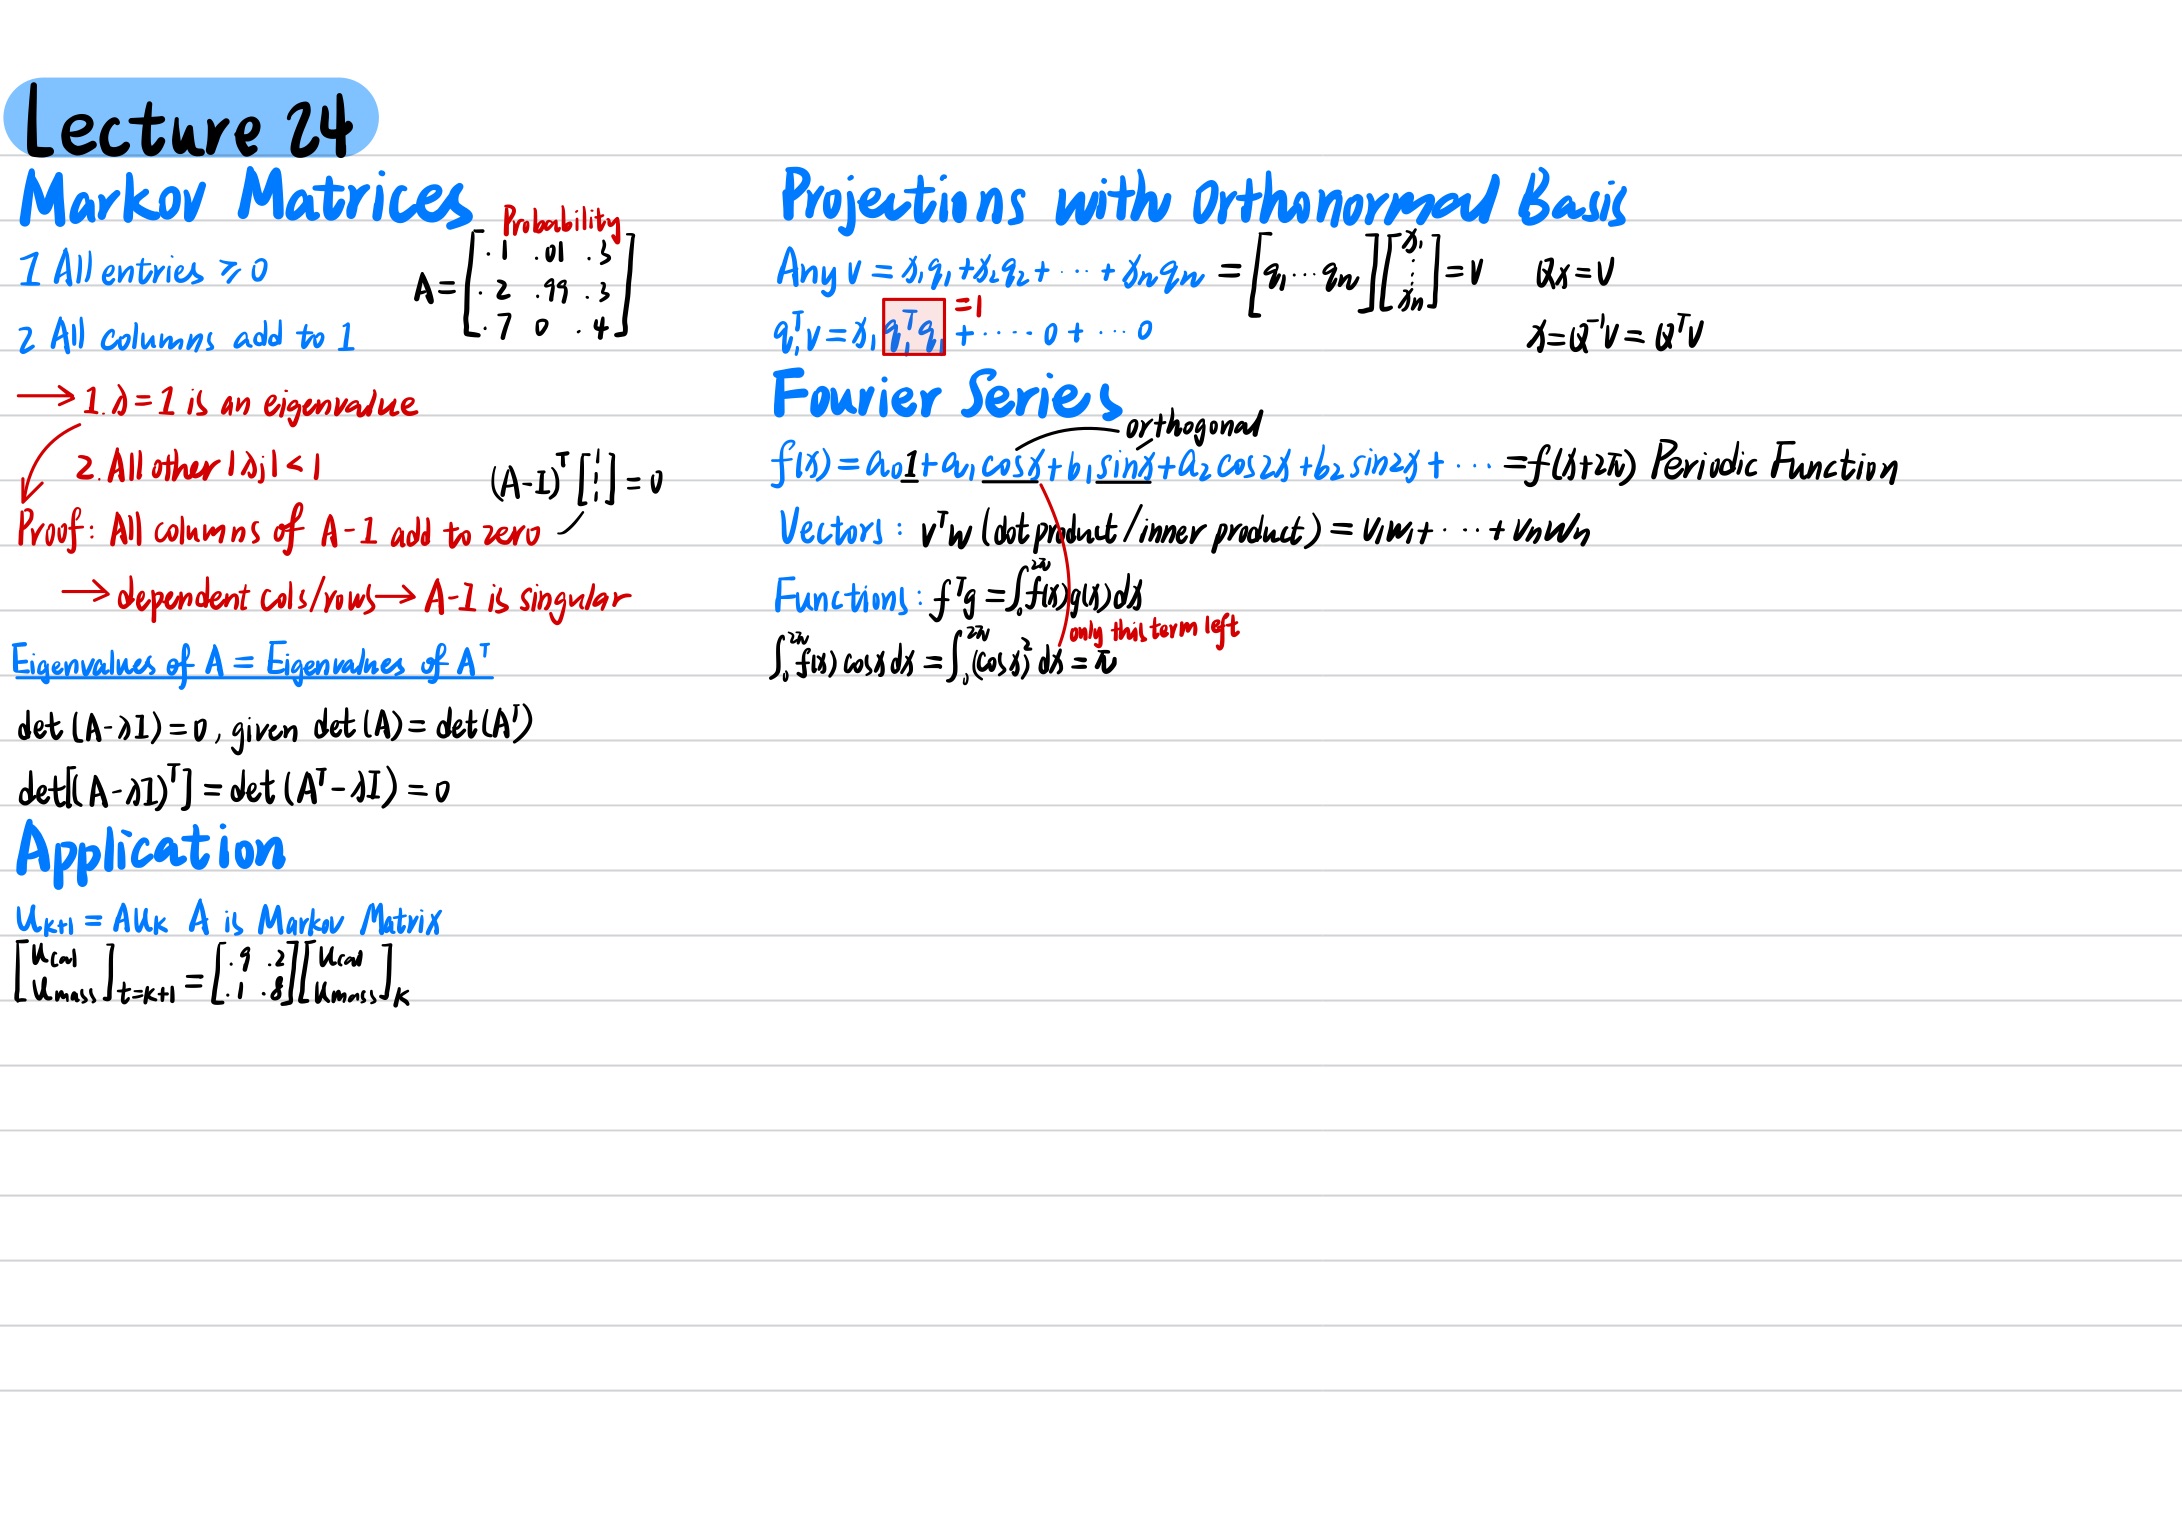 Lecture 24
Markov Matrices
Probability
1 All entries ≥ 0
A = [.1 .01 .3
.2 .99 .3
.7 0 .4]
2 All columns add to 1
→ 1. λ = 1 is an eigenvalue
2. All other |λj| < 1
(A-I)ᵀ [1 1 1] = 0
Proof: All columns of A-1 add to zero
→ dependent cols/rows → A-1 is singular
Eigenvalues of A = Eigenvalues of Aᵀ
det (A-λI) = 0, given det (A) = det(Aᵀ)
det[(A-λI)ᵀ] = det (Aᵀ-λI) = 0
Application
u_{k+1} = Au_k A is Markov Matrix
[u_cal u_mass]_{t=k+1} = [.9 .2 .1 .8] [u_cal u_mass]_k
Projections with Orthonormal Basis
Any v = x₁q₁ + x₂q₂ + ··· + xₙqₙ = [q₁ ··· qₙ] [x₁ ⋮ xₙ] = v Qx = v
q₁ᵀv = x₁ q₁ᵀq₁ + ···· 0 + ··· 0
=1
x = Q⁻¹v = Qᵀv
Fourier Series
orthogonal
f(x) = a₀1 + a₁ cosx + b₁ sinx + a₂ cos2x + b₂ sin2x + ··· = f(x+2π) Periodic Function
Vectors: vᵀw (dot product/inner product) = v₁w₁ + ··· + vₙwₙ
Functions: fᵀg = ∫₀^{2π} f(x)g(x)dx
only this term left
∫₀^{2π} f(x) cosx dx = ∫₀^{2π} (cosx)² dx = π